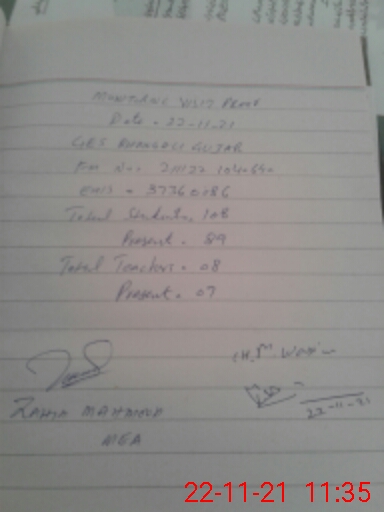 MONITORING VISIT PROOF
Date - 22-11-21
GES BHANGALI GUJAR
EMIS = 37360186
Total Students, 108
Present - 89
Total Teachers - 08
Present - 07
MAHMOOD
MEA
22-11-21
22-11-21 11:35